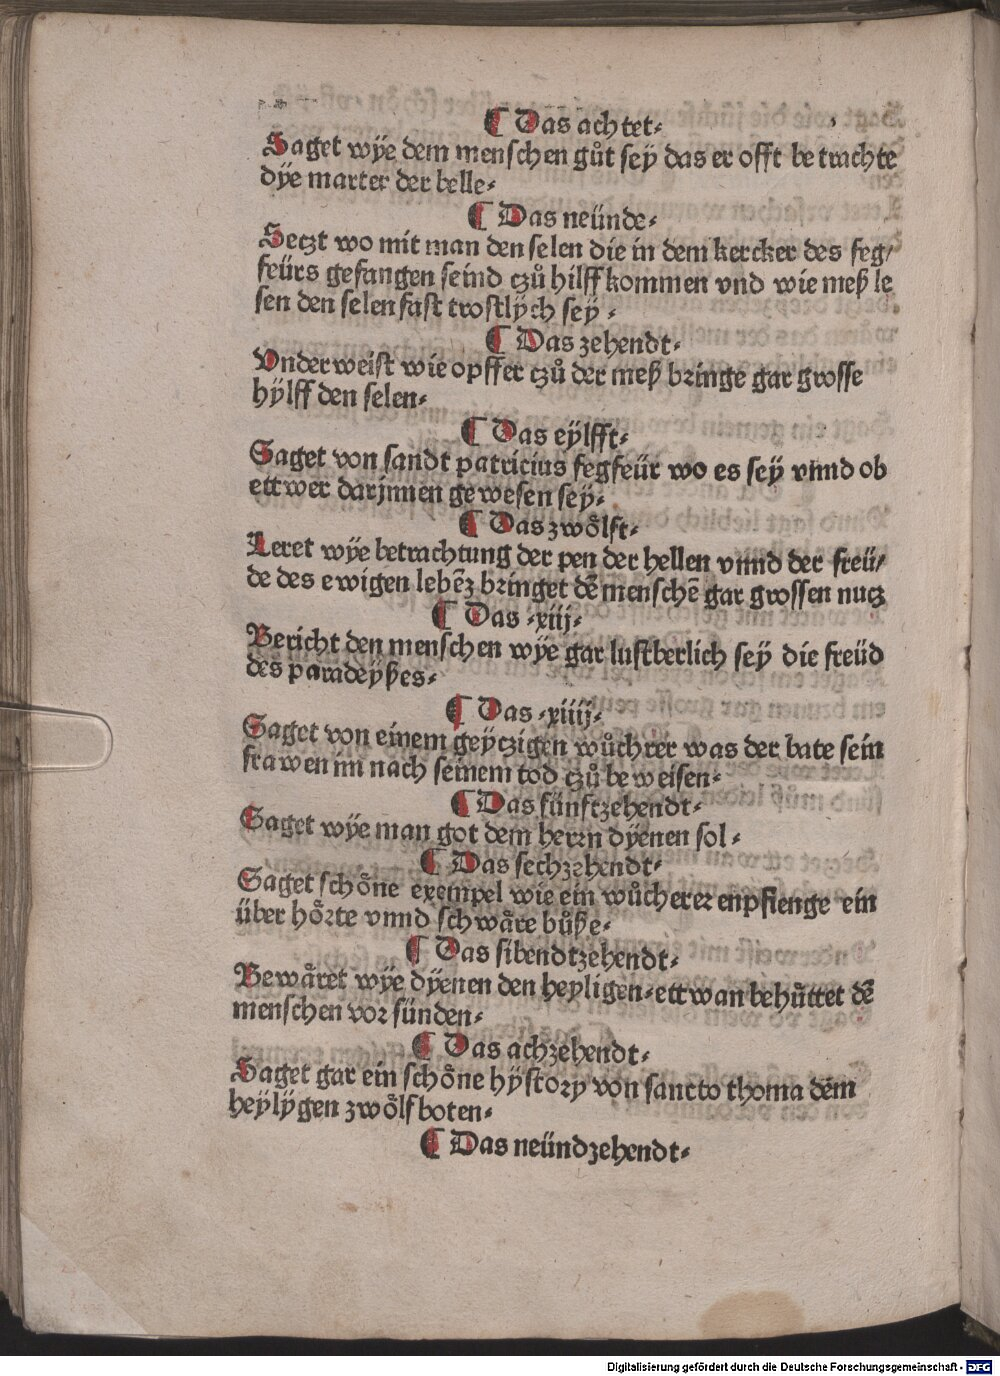 ¶ Das achtet⸗
Saget wÿe dem menschen gůt seÿ das er offt be trachte
dÿe marter der helle⸗
¶ Das neünde⸗
Seczt wo mit man den selen die in dem kercker des feg/
feürs gefangen seind czů hilff kommen vnd wie meß le
sen den selen fast trostlÿch seÿ⸗
¶ Das zehendt⸗
Vnderweist wie opffer czů der meß bringe gar grosse
hÿlff den selen⸗
¶ Das eÿlfft⸗
Saget von sandt patricius fegfeür wo es seÿ vnnd ob
ettwer darjnnen gewesen seÿ⸗
¶ Das zwoͤlft⸗
Leret wÿe betrachtung der pen der hellen vnnd der freü/
de des ewigen lebēz bringet dē menschē gar grossen nucz
¶ Das ⸗xiij⸗
Bericht den menschen wÿe gar lustberlich seÿ die freüd
des paradeÿßes⸗
¶ Das ⸗xiiij⸗
Saget von einem geÿczigen wůchrer was der bate sein
frawen im nach seinem tod czů beweisen⸗
¶ Das fünftzehendt⸗
Saget wÿe man got dem herrn dÿenen sol⸗
¶ Das sechzehendt⸗
Saget schoͤne exempel wie ein wůcherer enpfienge ein
über hoͤrte vnnd schwaͤre bůße⸗
¶ Das sibendtzehendt⸗
Bewaͤret wÿe dÿenen den heyligen⸗ettwan behuͤttet dē
menschen vor sünden⸗
¶ Das achzehendt⸗
Saget gar ein schoͤne hÿstory von sancto thoma dem
heÿlÿgen zwoͤlfboten⸗
¶ Das neündzehendt⸗
Digitalisierung gefördert durch die Deutsche Forschungsgemeinschaft - DFG